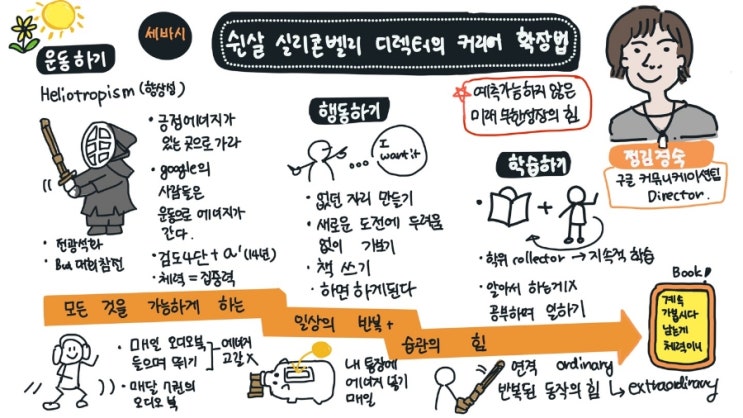 세바시
쉰살 실리콘벨리 디렉터의 커리어 확장법
운동하기
Heliotropism (향상성)
• 긍정에너지가
있는 곳으로 가라
• google의
사람들은
운동으로 에너지가
간다.
• 검도4단 + a' (14년)
• 체력 = 집중력
• 전광석화
• But 대회참전
행동하기
I
want it
• 없던 자리 만들기
• 새로운 도전에 두려움
없이 가보기
• 책 쓰기
• 하면 하게된다
예측가능하지 않은
미래 무한성장의 힘
학습하기
+
• 학위 collector → 지속적 학습
• 알아서 하는게 X
공부하며 일하기
정김경숙
구글 커뮤니케이션팀
Director.
모든 것을 가능하게 하는
일상의 반복 +
습관의 힘
• 매일 오디오북
들으며 뛰기
에너지
고갈 X
• 매달 7권의
오디오 북
내 통장에
에너지 넣기
매일
연격 ordinary
반복된 동작의 힘 → extraordinary
Book!
계속
가봅시다
남는게
체력이니